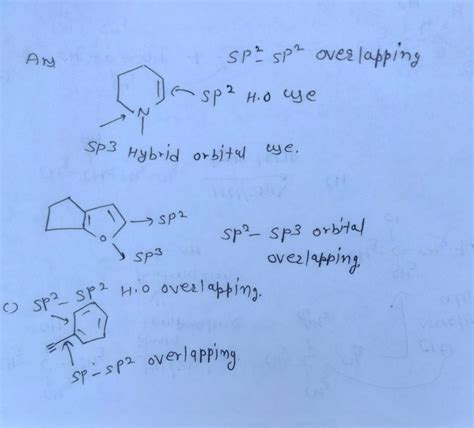 Ans
sp²- sp² overlapping
sp² H.O use
N
sp3 Hybrid orbital use.
sp²
O
sp3
sp²- sp3 orbital
overlapping.
c) sp²- sp² H.O overlapping.
sp-sp² overlapping.